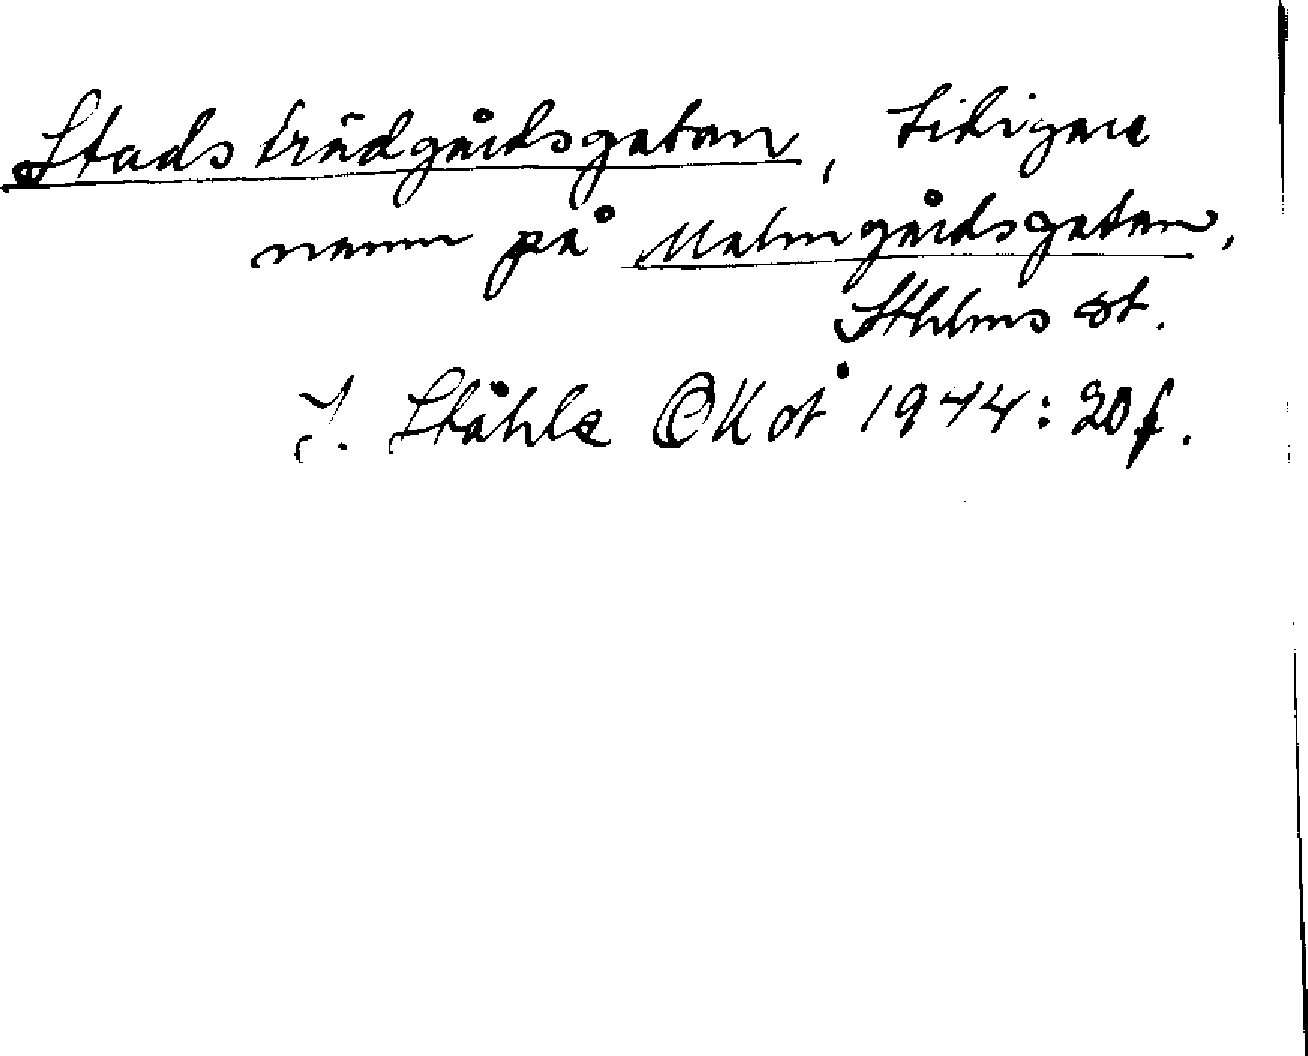 Stadsträdgårdsgatan, tidigare
namn på Malmgårdsgatan,
Sthlms st.
I. Ståhle OK å 1944: 20 f.